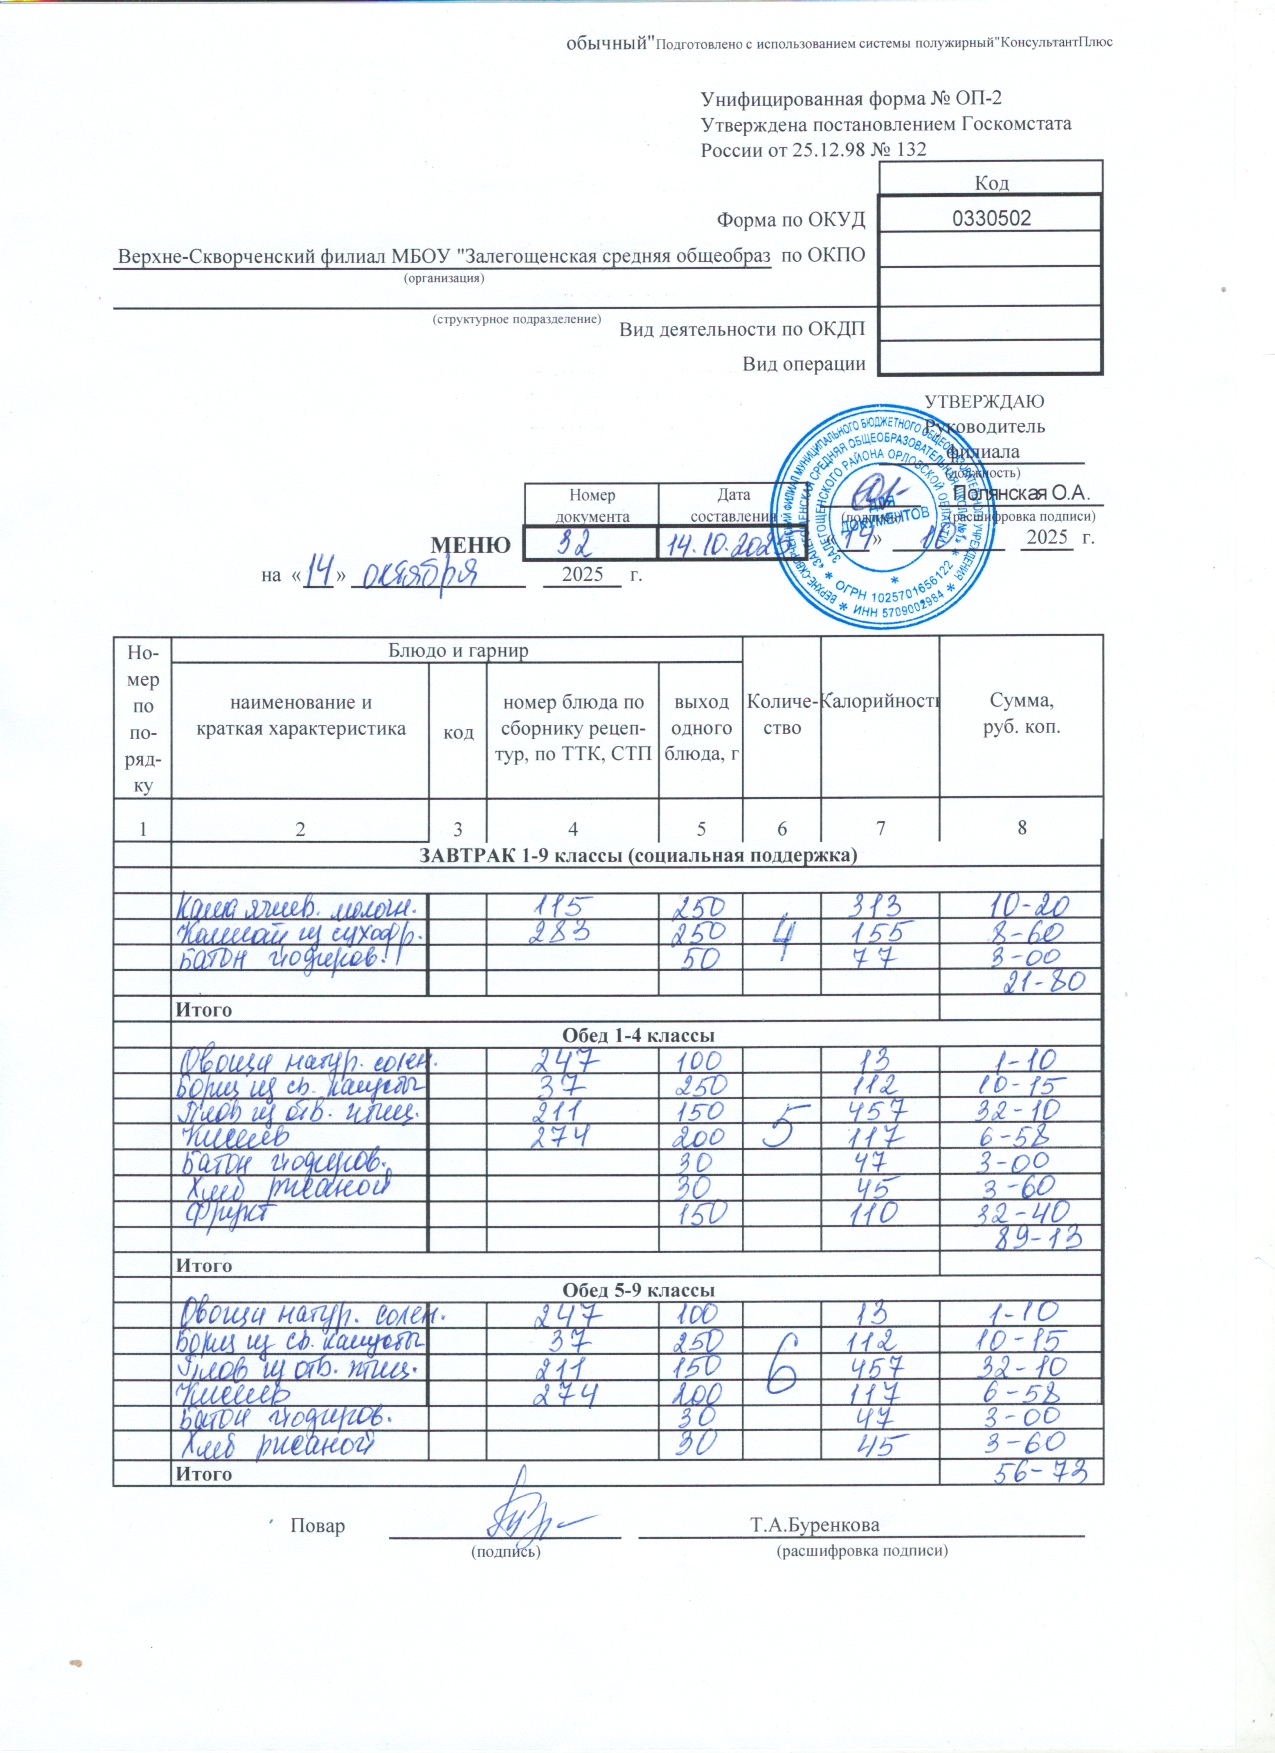 обычный"Подготовлено с использованием системы полужирный"КонсультантПлюс
Унифицированная форма № ОП-2
Утверждена постановлением Госкомстата
России от 25.12.98 № 132
Код
Форма по ОКУД 0330502
Верхне-Скворченский филиал МБОУ "Залегощенская средняя общеобраз по ОКПО
(организация)
(структурное подразделение)
Вид деятельности по ОКДП
Вид операции
УТВЕРЖДАЮ
Руководитель
филиала
(должность)
Полянская О.А.
(подпись) (расшифровка подписи)
«14» 10 2025 г.
ДЛЯ ДОКУМЕНТОВ
ЗАЛЕГОЩЕНСКОГО РАЙОНА ОРЛОВСКОЙ ОБЛАСТИ
* ОГРН 1025701656122 *
* ИНН 5709002984 *
Номер документа Дата составления
МЕНЮ 32 14.10.2025
на «14» октября 2025 г.
Но-мер по по-ряд-ку Блюдо и гарнир Количе-ство Калорийность Сумма, руб. коп.
наименование и краткая характеристика код номер блюда по сборнику рецеп-тур, по ТТК, СТП выход одного блюда, г
1 2 3 4 5 6 7 8
ЗАВТРАК 1-9 классы (социальная поддержка)
Каша ячнев. молочн. 115 250 313 10-20
Компот из сухофр. 283 250 4 155 8-60
Батон йодиров. 50 77 3-00
21-80
Итого
Обед 1-4 классы
Овощи натур. солен. 247 100 13 1-10
Борщ из св. капусты 37 250 112 10-15
Плов из отв. птиц. 211 150 5 457 32-10
Кисель 274 200 117 6-58
Батон йодиров. 30 47 3-00
Хлеб ржаной 30 45 3-60
Фрукт 150 110 32-40
89-13
Итого
Обед 5-9 классы
Овощи натур. солен. 247 100 13 1-10
Борщ из св. капусты 37 250 112 10-15
Плов из отв. птиц. 211 150 6 457 32-10
Кисель 274 200 117 6-58
Батон йодиров. 30 47 3-00
Хлеб ржаной 30 45 3-60
Итого 56-73
Повар Т.А.Буренкова
(подпись) (расшифровка подписи)